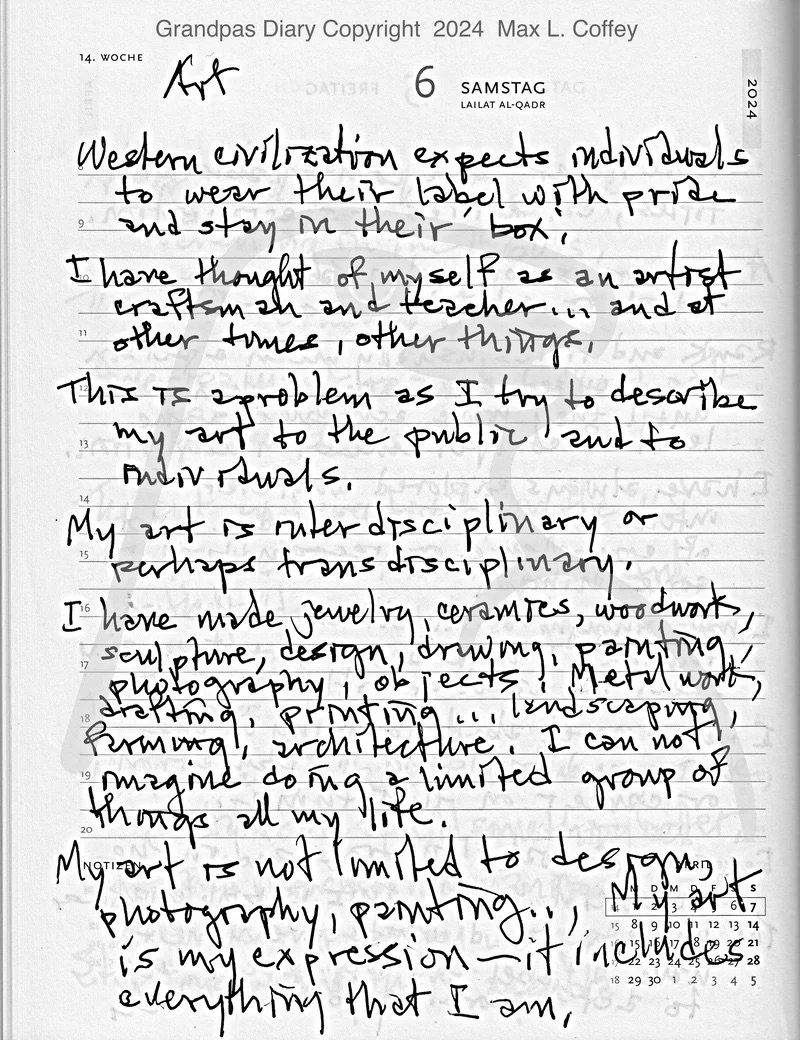 Grandpas Diary Copyright 2024 Max L. Coffey
14. WOCHE
Art
6 SAMSTAG
LAILAT AL-QADR
2024
Western civilization expects individuals
to wear their label with pride
9 and stay in their box.
I have thought of myself as an artist
craftsman and teacher... and at
11 other times, other things.
12 This is a problem as I try to describe
13 my art to the public and to
individuals.
14
My art is interdisciplinary or
15 perhaps transdisciplinary.
16 I have made jewelry, ceramics, woodwork,
sculpture, design, drawing, painting,
17 photography, objects, Metal work,
18 drafting, printing... landscaping,
farming, architecture. I can not
19 imagine doing a limited group of
things all my life.
20
NOTIZEN
My art is not limited to design,
photography, painting..., My art
is my expression — it includes
everything that I am,
APRIL
M D M D F S S
14 1 2 3 4 5 6 7
15 8 9 10 11 12 13 14
16 15 16 17 18 19 20 21
17 22 23 24 25 26 27 28
18 29 30 1 2 3 4 5